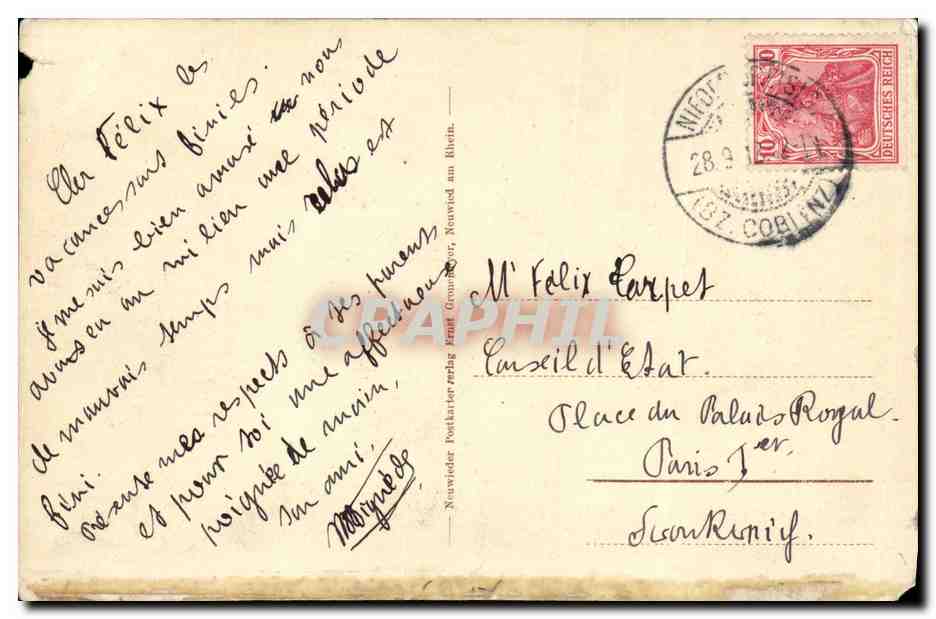 Cher Félix les
vacances sont finies.
je me suis bien amusé nous
avons eu au milieu une période
de mauvais temps mais cela est
fini.
Présente mes respects à tes parents
et pour toi une affectueuse
poignée de main,
ton ami,
Neuwieder Postkartenverlag Ernst Gronemeyer, Neuwied am Rhein.
DEUTSCHES REICH
10
10
28.9
(BZ. COBLENZ)
Mr Félix Tarpet
Conseil d'Etat.
Place du Palais Royal.
Paris Ier
Frankreich.
CPAPHIL